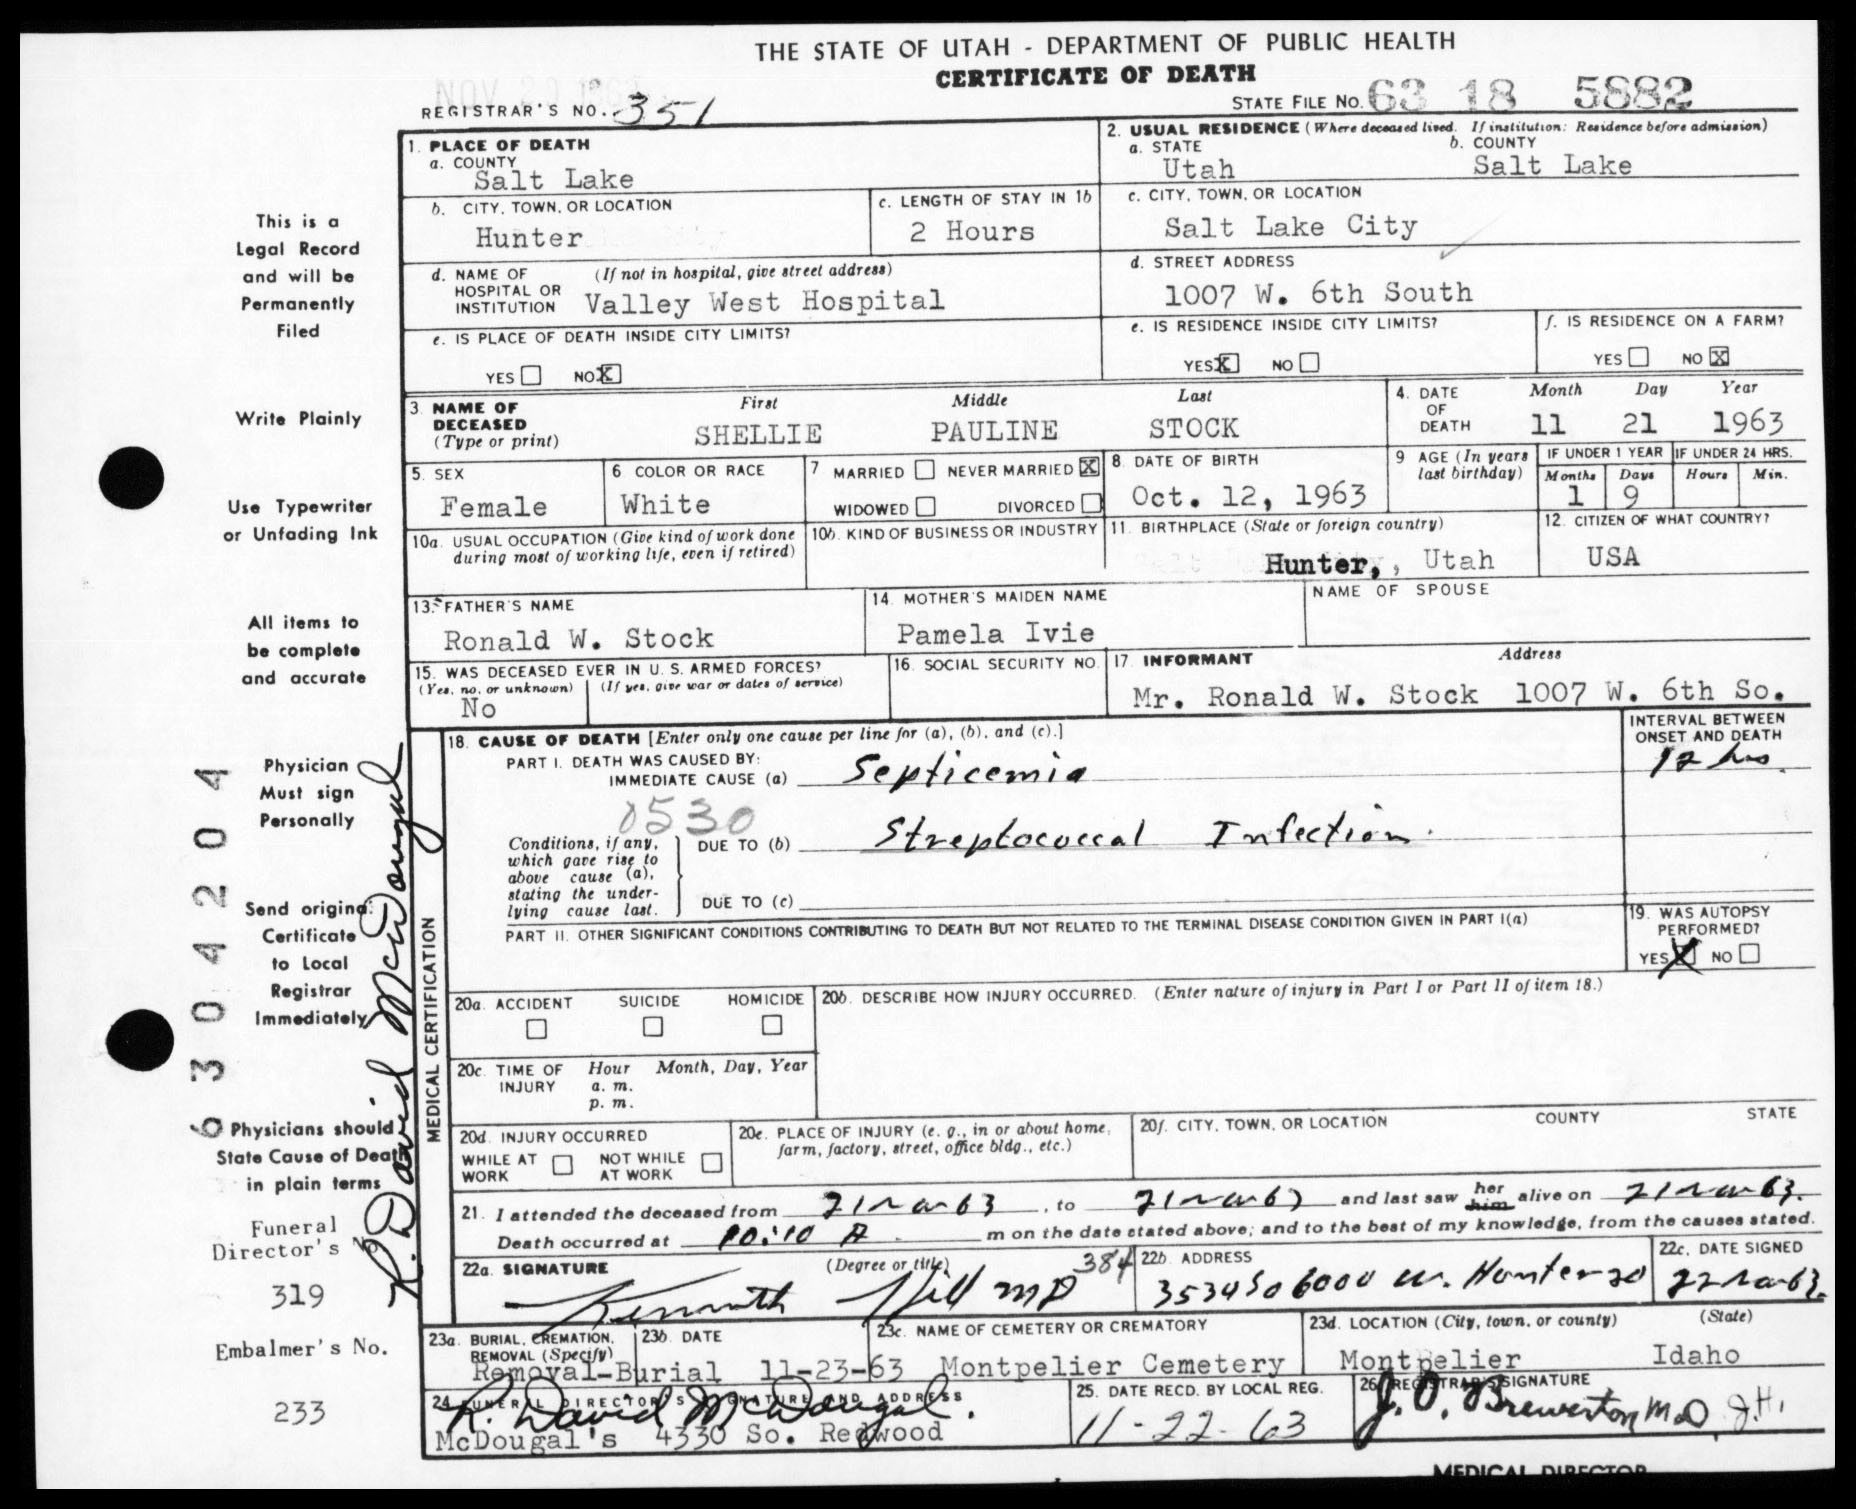 THE STATE OF UTAH - DEPARTMENT OF PUBLIC HEALTH
CERTIFICATE OF DEATH
NOV 29 1963
REGISTRAR'S NO. 351
STATE FILE NO. 63 18 5882
1. PLACE OF DEATH
a. COUNTY
Salt Lake
2. USUAL RESIDENCE (Where deceased lived. If institution: Residence before admission)
a. STATE
Utah
b. COUNTY
Salt Lake
b. CITY, TOWN, OR LOCATION
Hunter
c. LENGTH OF STAY IN 1b
2 Hours
c. CITY, TOWN, OR LOCATION
Salt Lake City
d. NAME OF HOSPITAL OR INSTITUTION
(If not in hospital, give street address)
Valley West Hospital
d. STREET ADDRESS
1007 W. 6th South
e. IS PLACE OF DEATH INSIDE CITY LIMITS?
YES NO X
e. IS RESIDENCE INSIDE CITY LIMITS?
YES X NO
f. IS RESIDENCE ON A FARM?
YES NO X
3. NAME OF DECEASED
(Type or print)
First Middle Last
SHELLIE PAULINE STOCK
4. DATE OF DEATH
Month Day Year
11 21 1963
5. SEX
Female
6 COLOR OR RACE
White
7 MARRIED NEVER MARRIED X
WIDOWED DIVORCED
8. DATE OF BIRTH
Oct. 12, 1963
9 AGE (In years last birthday)
IF UNDER 1 YEAR
Months Days
1 9
IF UNDER 24 HRS.
Hours Min.
10a. USUAL OCCUPATION (Give kind of work done during most of working life, even if retired)
10b. KIND OF BUSINESS OR INDUSTRY
11. BIRTHPLACE (State or foreign country)
Hunter, , Utah
12. CITIZEN OF WHAT COUNTRY?
USA
13. FATHER'S NAME
Ronald W. Stock
14. MOTHER'S MAIDEN NAME
Pamela Ivie
NAME OF SPOUSE
15. WAS DECEASED EVER IN U. S. ARMED FORCES?
(Yes, no, or unknown) (If yes, give war or dates of service)
No
16. SOCIAL SECURITY NO.
17. INFORMANT Address
Mr. Ronald W. Stock 1007 W. 6th So.
18. CAUSE OF DEATH [Enter only one cause per line for (a), (b), and (c).]
PART I. DEATH WAS CAUSED BY:
IMMEDIATE CAUSE (a) Septicemia
INTERVAL BETWEEN ONSET AND DEATH
12 hrs.
0530
Conditions, if any, which gave rise to above cause (a), stating the underlying cause last.
DUE TO (b) Streptococcal Infection.
DUE TO (c)
PART II. OTHER SIGNIFICANT CONDITIONS CONTRIBUTING TO DEATH BUT NOT RELATED TO THE TERMINAL DISEASE CONDITION GIVEN IN PART I(a)
19. WAS AUTOPSY PERFORMED?
YES X NO
MEDICAL CERTIFICATION
20a. ACCIDENT SUICIDE HOMICIDE
20b. DESCRIBE HOW INJURY OCCURRED. (Enter nature of injury in Part I or Part II of item 18.)
20c. TIME OF INJURY
Hour Month, Day, Year
a. m.
p. m.
20d. INJURY OCCURRED
WHILE AT WORK NOT WHILE AT WORK
20e. PLACE OF INJURY (e. g., in or about home, farm, factory, street, office bldg., etc.)
20f. CITY, TOWN, OR LOCATION COUNTY STATE
21. I attended the deceased from 21 Nov 63, to 21 Nov 63 and last saw her him alive on 21 Nov 63.
Death occurred at 10:10 A. m on the date stated above; and to the best of my knowledge, from the causes stated.
22a. SIGNATURE (Degree or title)
Kenneth Hill MD 384
22b. ADDRESS
3534 So 6000 W. Hunter 20
22c. DATE SIGNED
22 Nov 63.
23a. BURIAL, CREMATION, REMOVAL (Specify)
Removal-Burial
23b. DATE
11-23-63
23c. NAME OF CEMETERY OR CREMATORY
Montpelier Cemetery
23d. LOCATION (City, town, or county) (State)
Montpelier Idaho
24. FUNERAL DIRECTOR'S SIGNATURE AND ADDRESS
R. David McDougal.
McDougal's 4330 So. Redwood
25. DATE RECD. BY LOCAL REG.
11-22-63
26. REGISTRAR'S SIGNATURE
J. O. Brewerton M.D. J.H.
MEDICAL DIRECTOR
This is a
Legal Record
and will be
Permanently
Filed
Write Plainly
Use Typewriter
or Unfading Ink
All items to
be complete
and accurate
Physician
Must sign
Personally
Send original
Certificate
to Local
Registrar
Immediately
Physicians should
State Cause of Death
in plain terms
Funeral
Director's No
319
Embalmer's No.
233
6304204
R. David McDougal